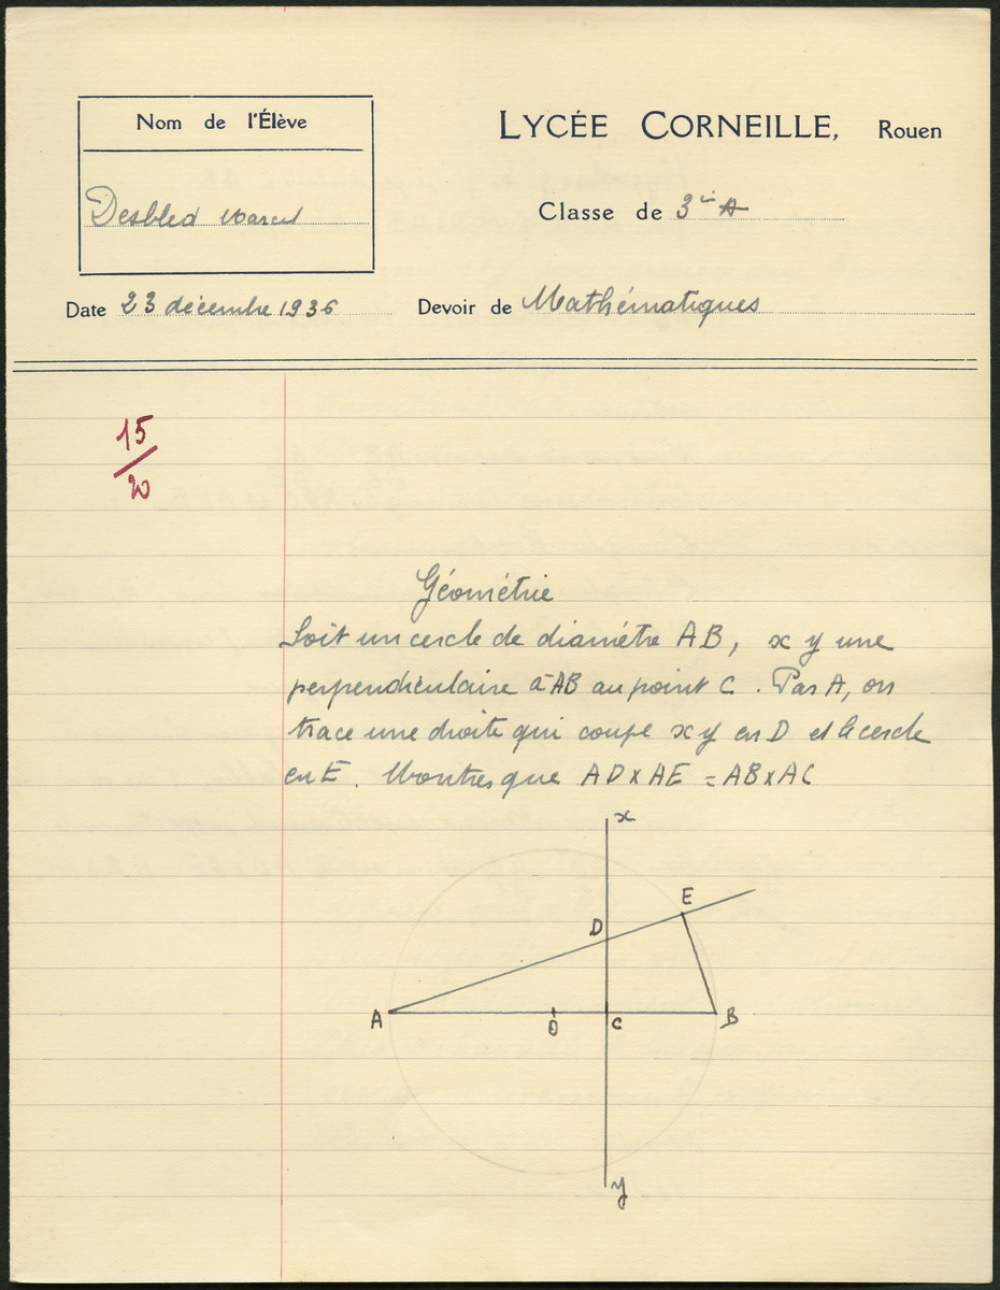 Nom de l'Élève
LYCÉE CORNEILLE, Rouen
Desbled Marcel
Classe de 3e A
Date 23 décembre 1936
Devoir de Mathématiques
15
20
Géométrie
Soit un cercle de diamétre AB, x y une
perpendiculaire à AB au point C. Par A, on
trace une droite qui coupe x y en D et le cercle
en E. Montres que AD x AE = AB x AC
x
E
D
A
O
C
B
y